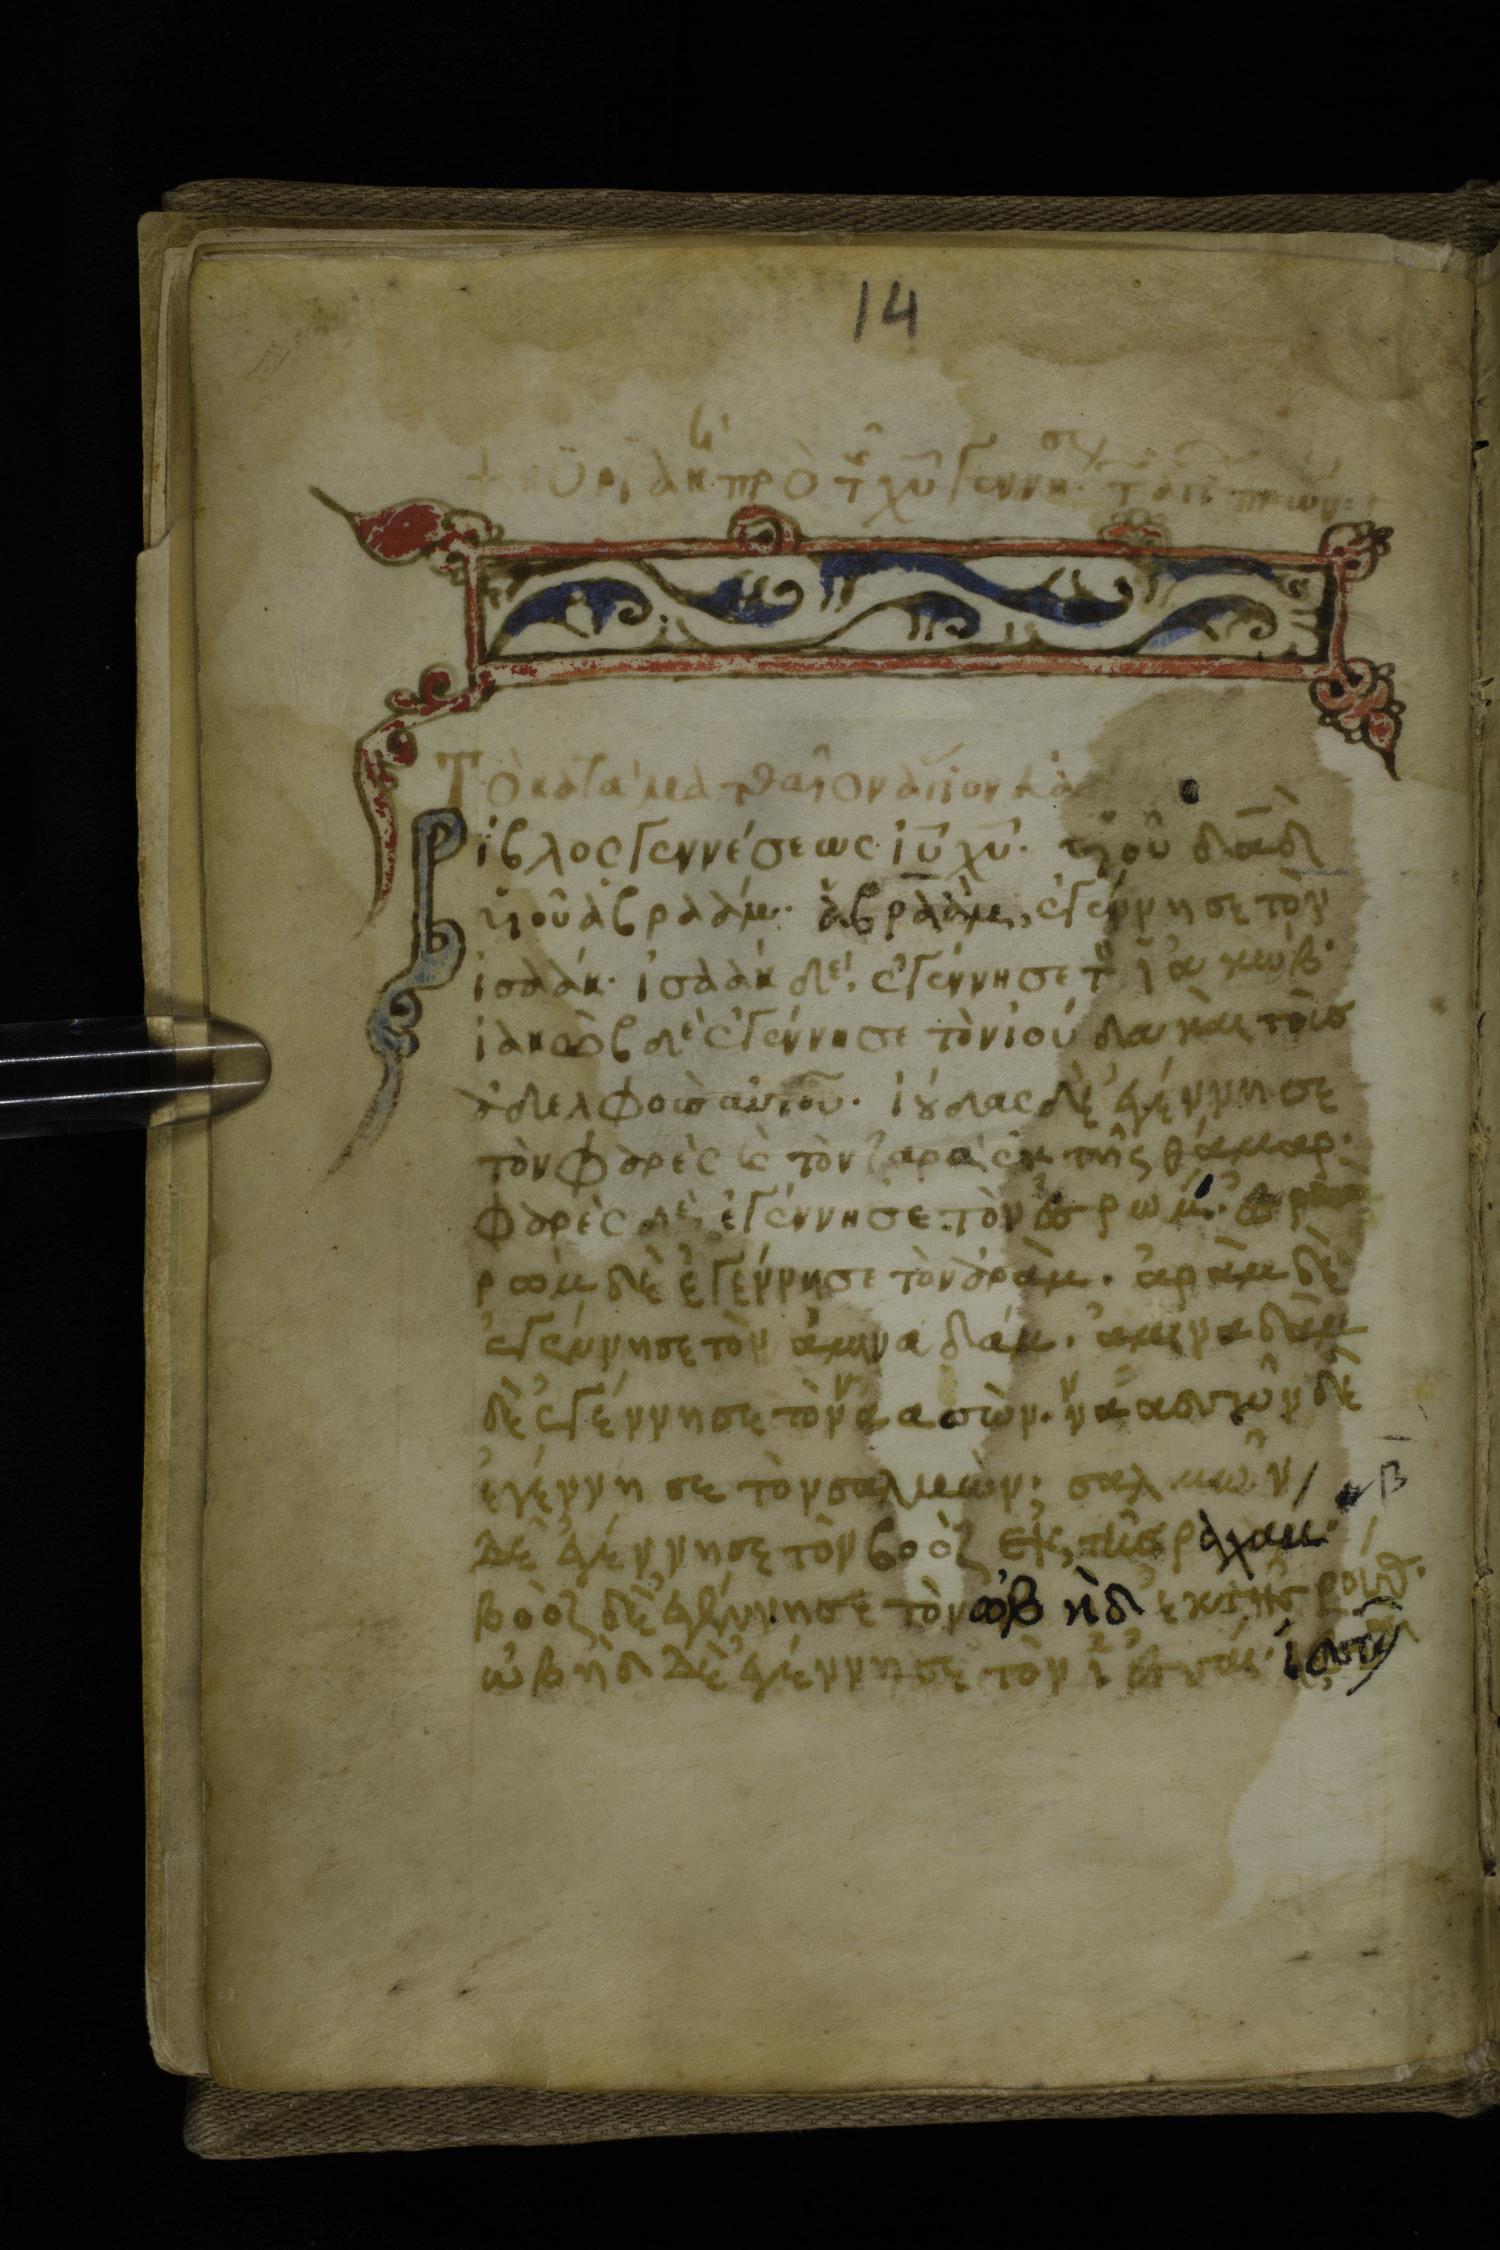 14
+ κυριακῆ πρὸ τ χυ γεννη
Τὸ κατὰ ματθαῖον ἅγιον
Βίβλος γεννέσεως ιυ χυ· υἱοῦ δαδ
υἱοῦ ἀβραάμ· ἀβραὰμ, ἐγέννησε τὸν
ἰσαάκ· ἰσαὰκ δὲ, ἐγέννησε τ ἰακώβ·
ἰακὼβ δὲ ἐγέννησε τὸν ἰούδαν καὶ τοὺσ
ἀδελφοὺσ αὐτοῦ· ἰούδας δὲ ἐγέννησε
τὸν φαρὲς κ τὸν ζαρὰ ἐκ τῆς θάμαρ·
φαρὲς δὲ, ἐγέννησε τὸν ἐσρώμ· ἐσ
ρὼμ δὲ ἐγέννησε τὸν ἀράμ· ἀρὰμ δὲ
ἐγέννησε τὸν ἀμιναδάμ· ἀμιναδὰμ
δὲ ἐγέννησε τὸν ναασών· ναασσὼν δὲ
ἐγέννησε τὸν σαλμών· σαλμὼν
δὲ ἐγέννησε τὸν βοὸζ ἐκ τῆσ ραχαμ·
βοὸζ δὲ ἐγέννησε τὸν ὠβὴδ ἐκ τῆσ ρούθ·
ὠβὴδ δὲ ἐγέννησε τὸν ἰεσσαί·